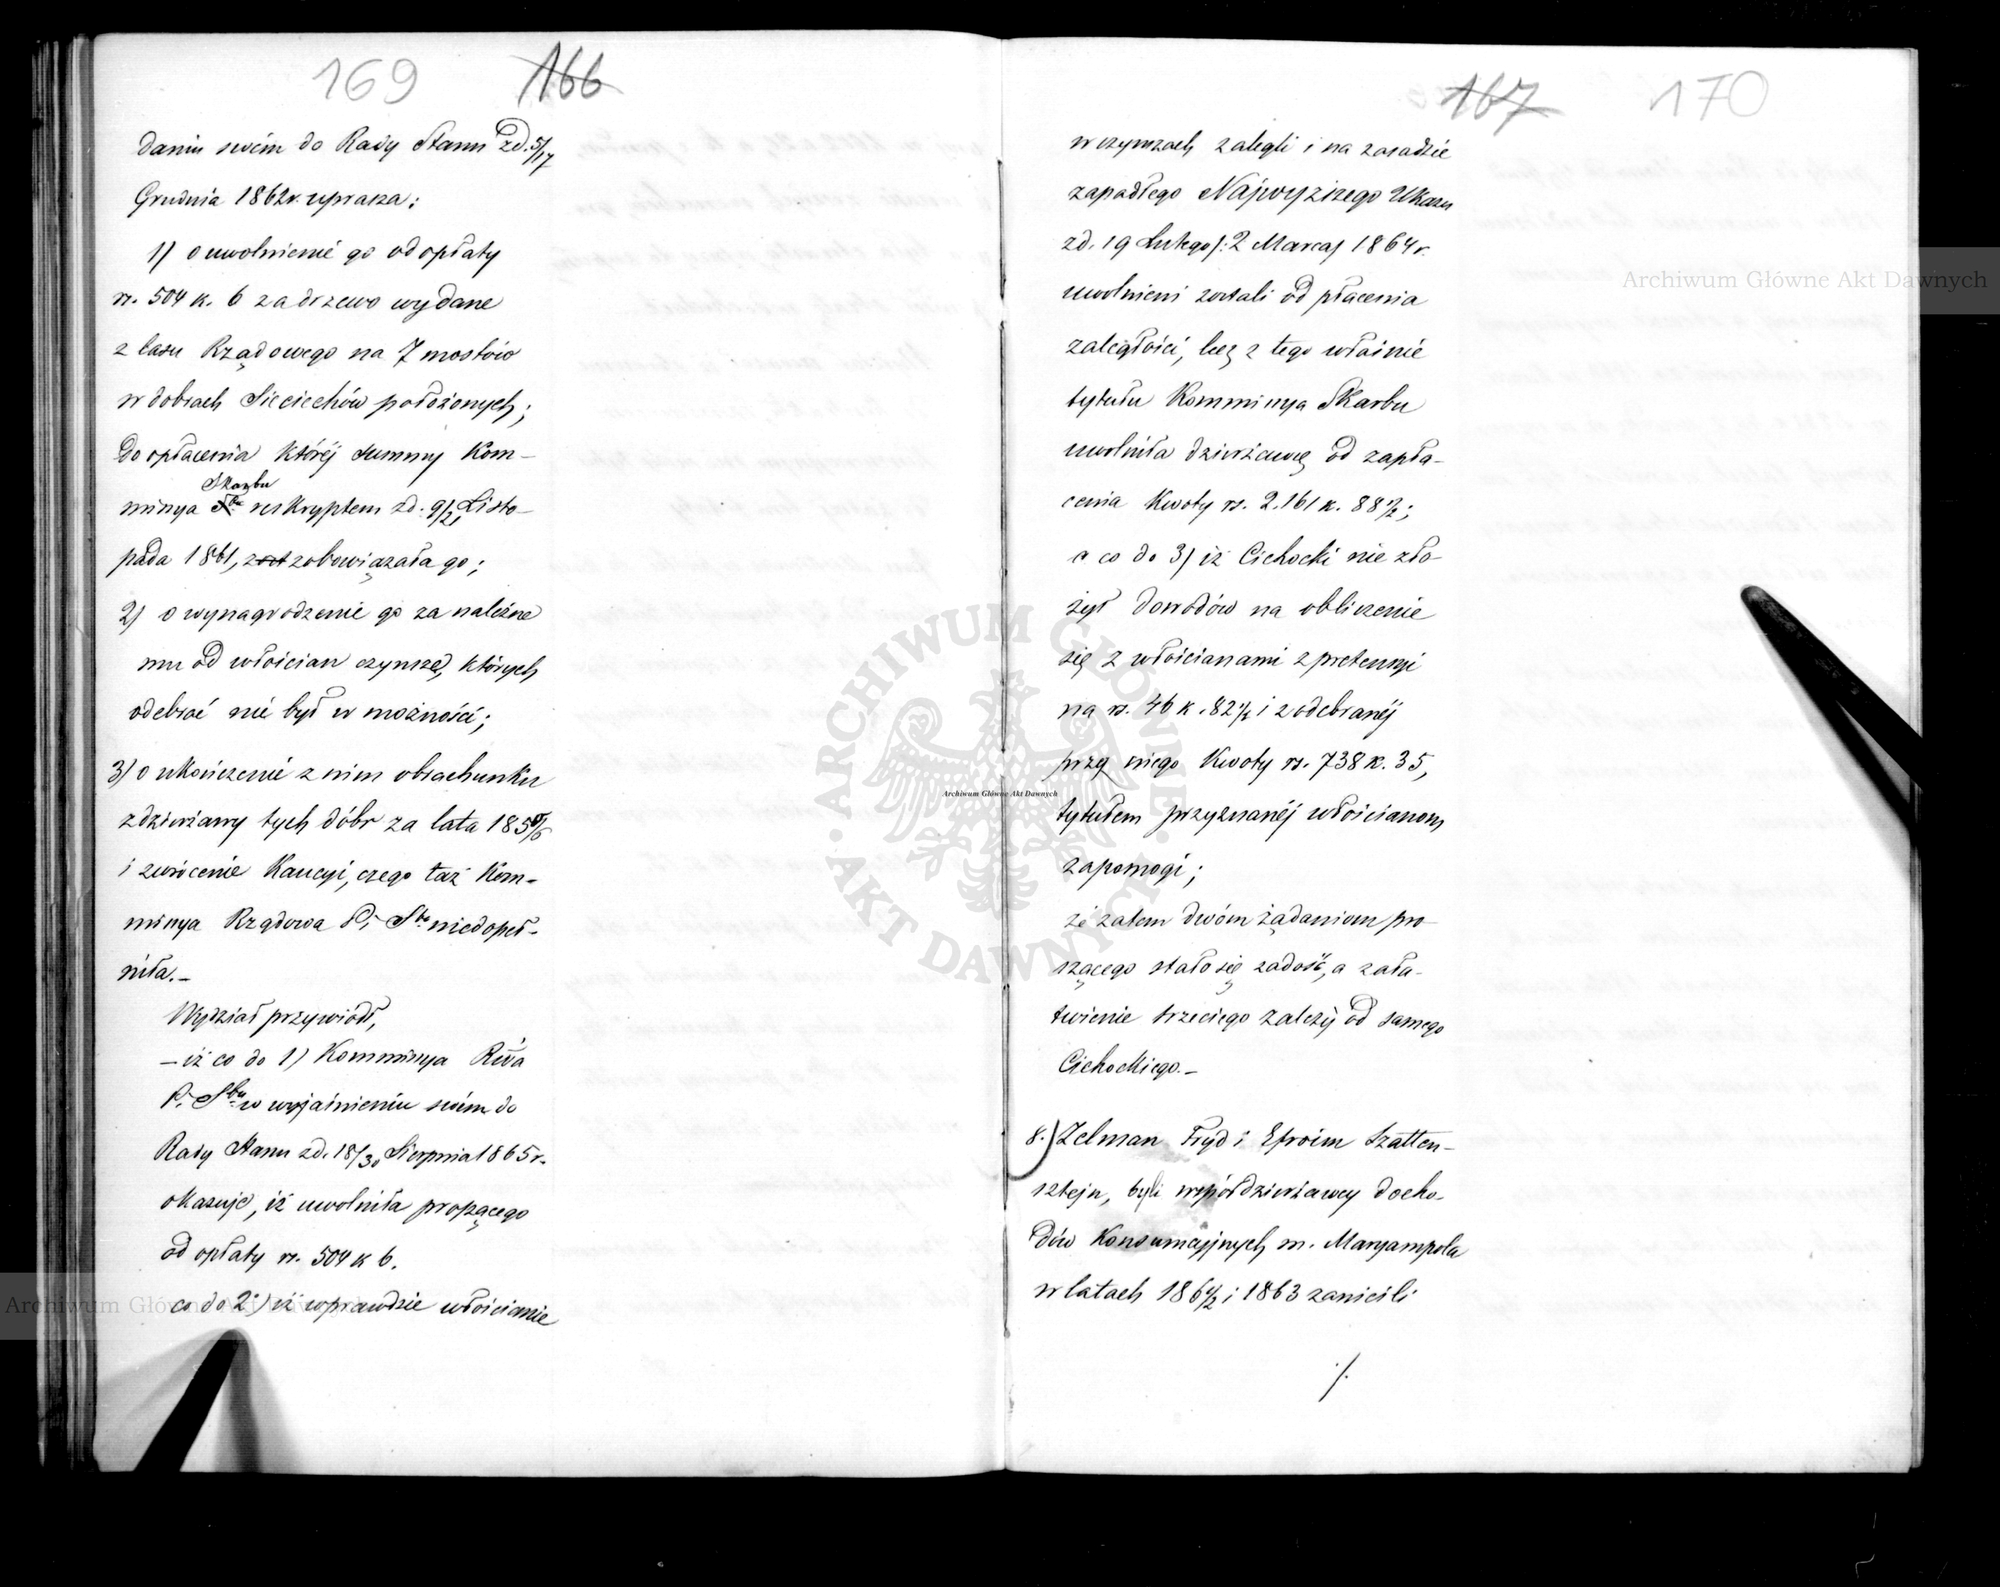 169 166
daniu swém do Rady Stanu zd. 5/17
Grudnia 1862 r. uprasza:
1) o uwolnienié go od opłaty
rs. 504 k. 6 za drzewo wydane
z lasu Rządowego na 7 mostów
w dobrach Sieciechów położonych;
do opłacenia któréj summy Kom-
missya Skarbu reskryptem zd. 9/21 Listo-
pada 1861, zobowiązała go;
2) o wynagrodzenie go za należne
mu od włościan czynsze, których
odebrać nié był w możności;
3) o ukończenié z nim obrachunku
z dzierżawy tych dóbr za lata 185
i zwrócenie Kaucyi, czego taż Kom-
missya Rządowa P. i Sbu niedopeł-
niła.-
Wydział przywiódł,
- iż co do 1) Kommissya Rwa
P. i Sbu w wyjaśnieniu swém do
Rady Stanu zd. 18/30 Sierpnia 1865 r.
okazuje, iż uwolniła proszącego
od opłaty rs. 504 k 6.
co do 2) iż wprawdzie włościanie
167 170
w czynszach zalegli i na zasadzie
zapadłego Najwyższego Ukazu
zd. 19 Lutego /: 2 Marca / 1864 r.
uwolnieni zostali od płacenia
zaległości, lecz z tego właśnié
tytułu Kommissya Skarbu
uwolniła dzierżawcę od zapła-
cenia Kwoty rs. 2.161 k. 88 1/2;
a co do 3) iż Cichocki nie zło-
żył dowodów na obliczenie
się z włościanami z pretensyi
na rs. 46 k. 82 1/2 i z odebranéj
przez niego Kwoty rs. 738 k. 35,
tytułem przyznanéj włościanom
zapomogi;
żé zatem dwóm żądaniom pro-
szącego stało się zadość, a zała-
twienie trzeciego zależy od samego
Cichockiego.-
8.) Zelman Fryd i Efroim Szatten-
sztejn, byli współdzierżawcy docho-
dów Konsumcyjnych m. Maryampola
w latach 186 1/2 i 1863 zanieśli
./.
Archiwum Główne Akt Dawnych
Archiwum Główne Akt Dawnych
Archiwum Główne Akt Dawnych
ARCHIWUM GŁÓWNE
AKT DAWNYCH